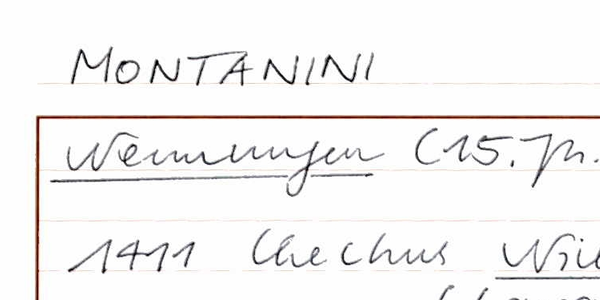 MONTANINI
Nennungen (15. Jh.
1411 Chechus